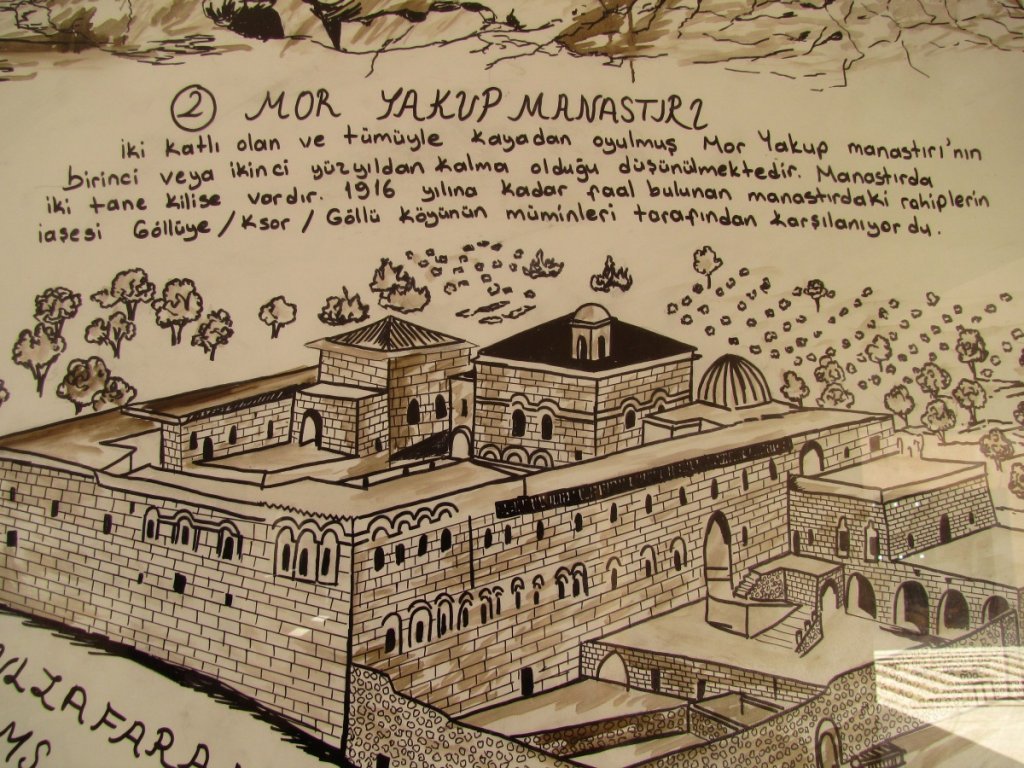 2 MOR YAKUP MANASTIRI
İki katlı olan ve tümüyle kayadan oyulmuş Mor Yakup manastırı'nın
birinci veya ikinci yüzyıldan kalma olduğu düşünülmektedir. Manastırda
iki tane kilise vardır. 1916 yılına kadar faal bulunan manastırdaki rahiplerin
iaşesi Göllüye/Ksor/Göllü köyünün müminleri tarafından karşılanıyordu.